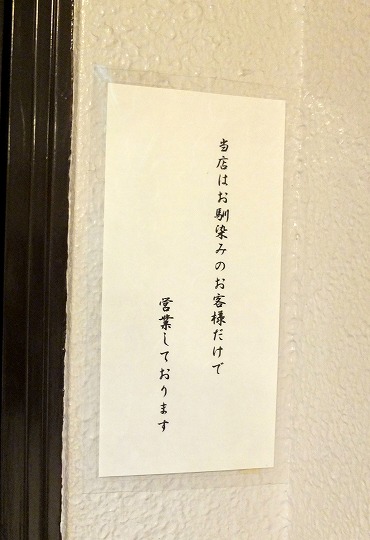 当店はお馴染みのお客様だけで
営業しております